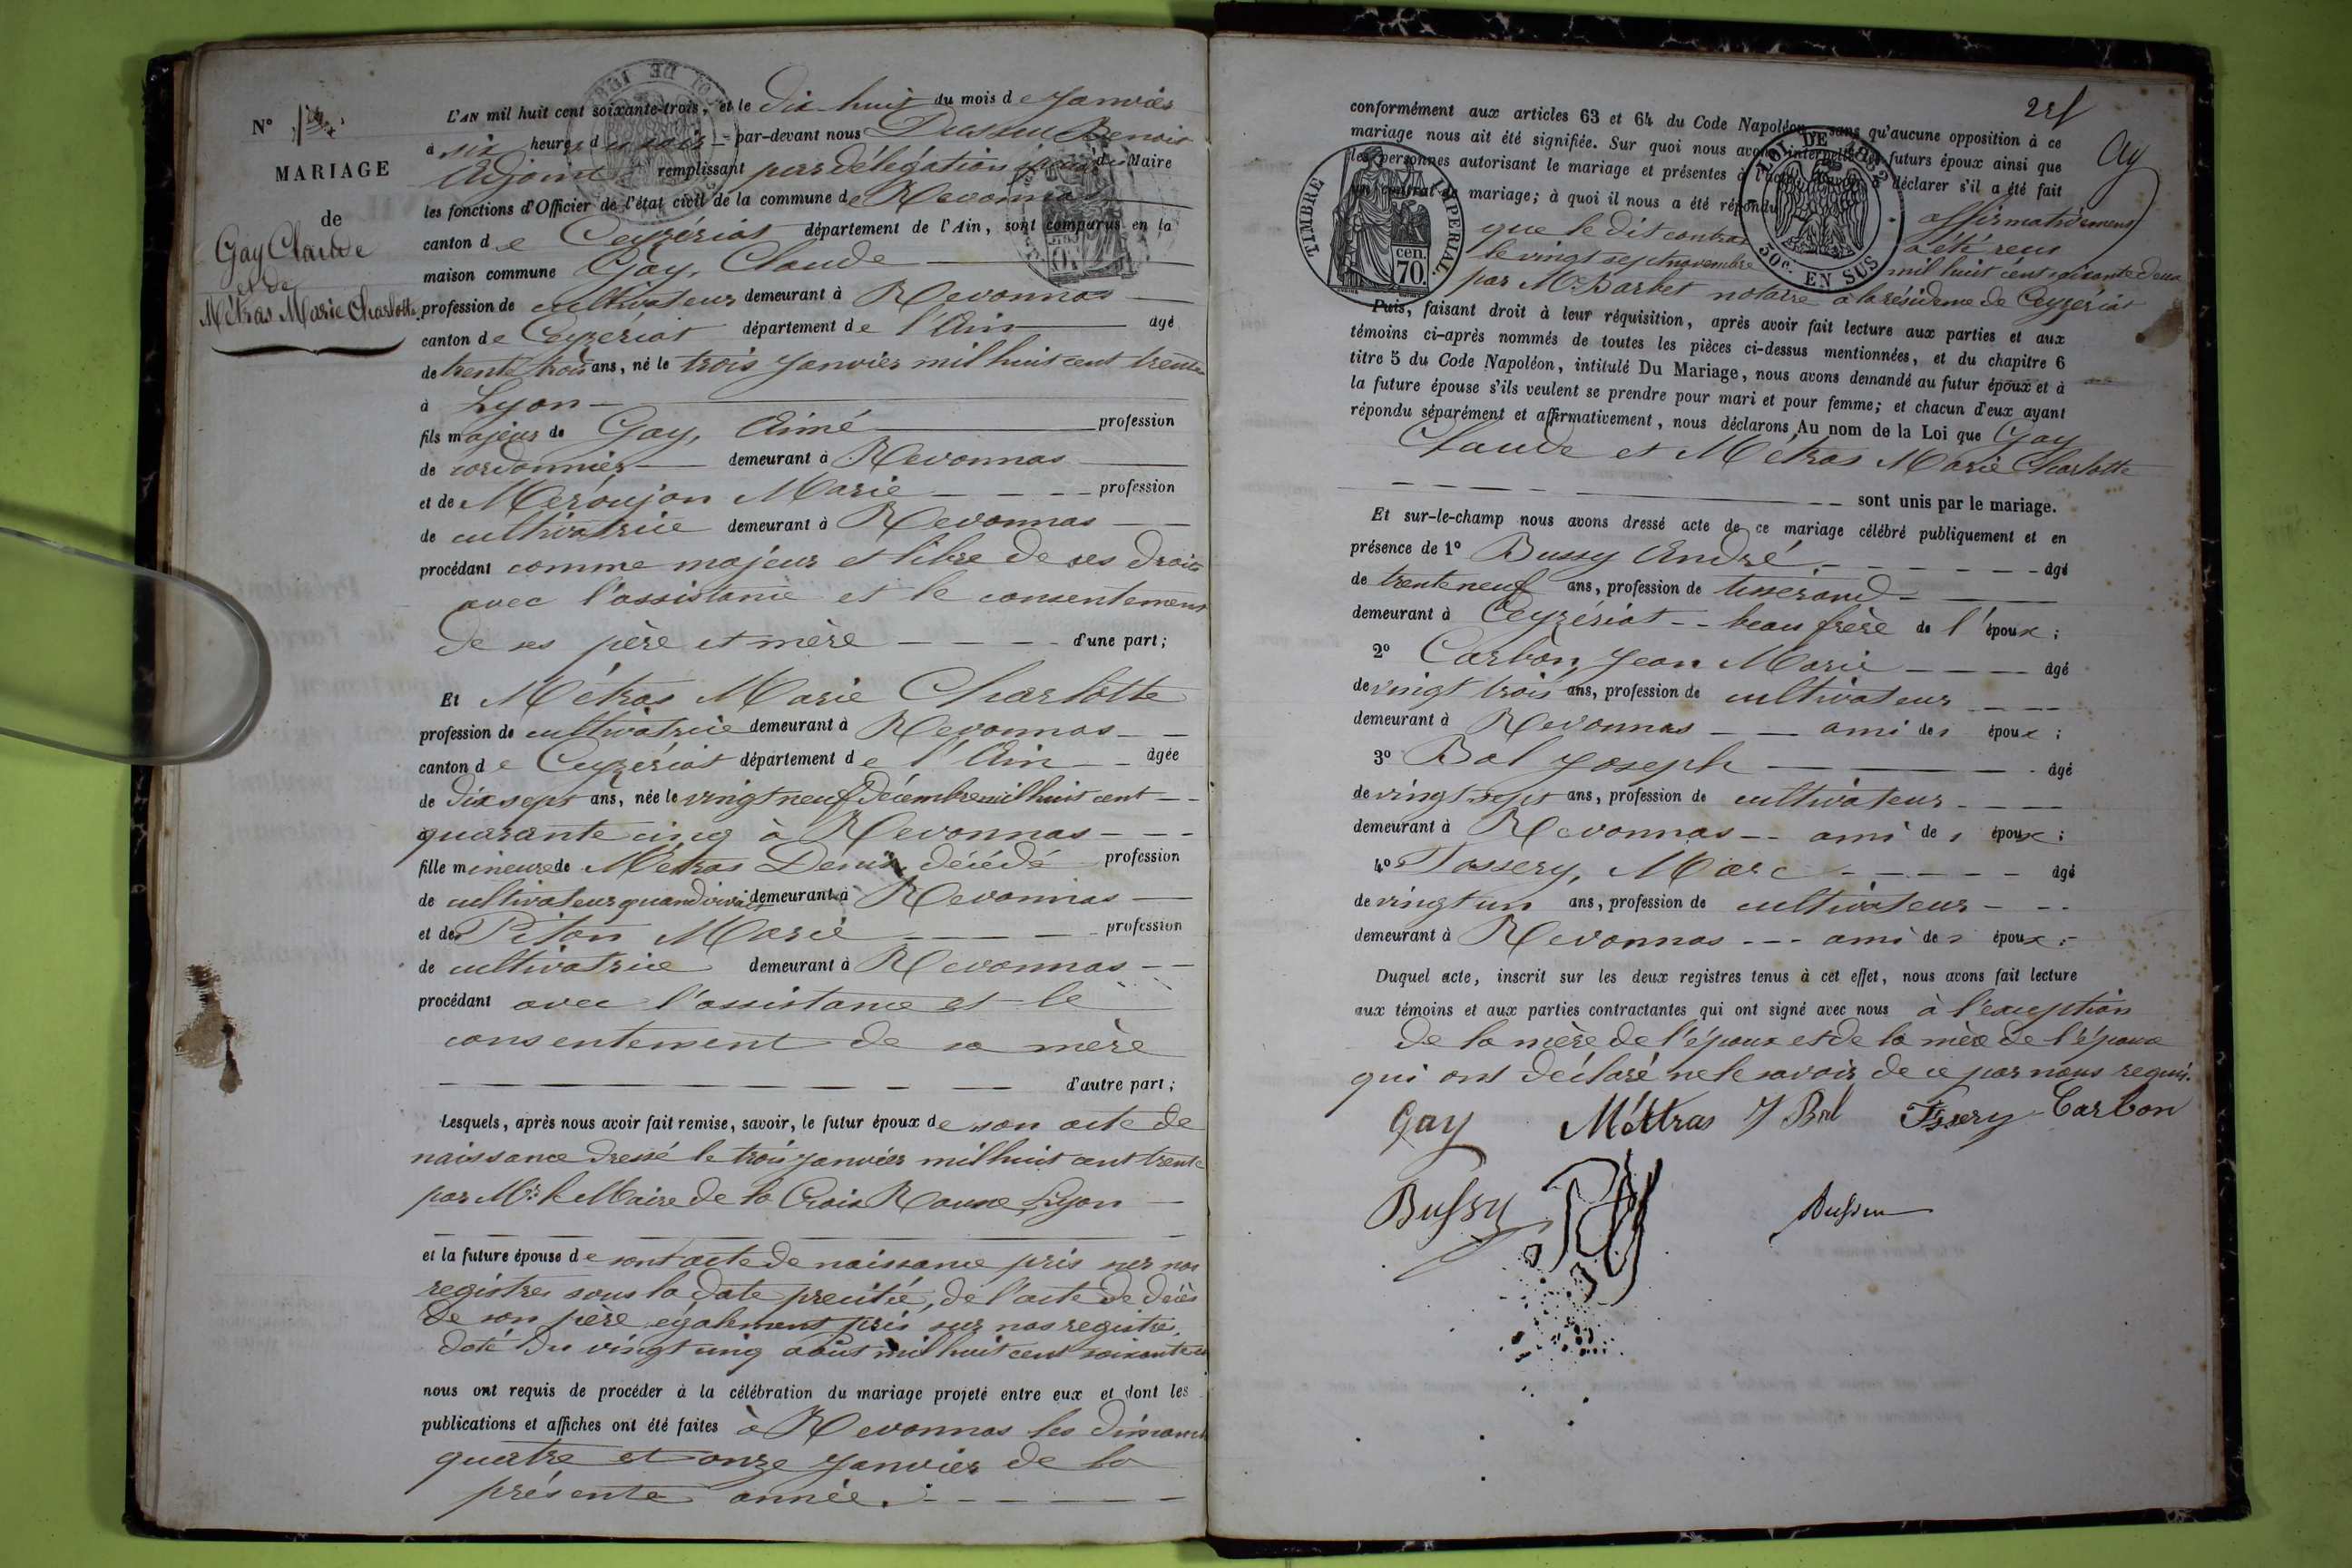 N°
MARIAGE
de
Gay Claude
et de
Métras Marie Charlotte
L'AN mil huit cent soixante-trois, et le dix huit du mois de Janvier
à six heures du soir par-devant nous Benoit
Adjoint remplissant par délégation du Maire
les fonctions d'Officier de l'état civil de la commune de Revonnas
canton de Ceyzériat département de l'Ain, sont comparus en la
maison commune Gay, Claude
profession de cultivateur demeurant à Revonnas
canton de Ceyzériat département de l'Ain agé
de trente trois ans, né le trois Janvier mil huit cent trente
à Lyon
fils majeur de Gay, Aimé profession
de cordonnier demeurant à Revonnas
et de Meroujon Marie profession
de cultivatrice demeurant à Revonnas
procédant comme majeur et libre de ses droits
avec l'assistance et le consentement
de ses père et mère d'une part;
Et Métras Marie Charlotte
profession de cultivatrice demeurant à Revonnas
canton de Ceyzériat département de l'Ain âgée
de dix sept ans, née le vingt neuf Décembre mil huit cent
quarante cinq à Revonnas
fille mineure de Métras Denis décédé profession
de cultivateur quand vivait demeurant à Revonnas
et de Piton Marie profession
de cultivatrice demeurant à Revonnas
procédant avec l'assistance et le
consentement de sa mère
d'autre part;
Lesquels, après nous avoir fait remise, savoir, le futur époux de son acte de
naissance dressé le trois Janvier mil huit cent trente
par Mr. le Maire de la Croix Rousse, Lyon
et la future épouse de sont acte de naissance pris sur nos
registres sous la date precitée, de l'acte de décès
de son père également pris sur nos registres,
daté du vingt cinq aout mil huit cent soixante
nous ont requis de procéder à la célébration du mariage projeté entre eux et dont les
publications et affiches ont été faites à Revonnas les dimanch
quatre et onze Janvier de la
présente année.
conformément aux articles 63 et 64 du Code Napoléon, sans qu'aucune opposition à ce
mariage nous ait été signifiée. Sur quoi nous avons interpellé les futurs époux ainsi que
les personnes autorisant le mariage et présentes à déclarer s'il a été fait
un contrat de mariage; à quoi il nous a été répondu affirmativement
que le dit contrat a été reçu
le vingt sept novembre mil huit cent soixante deux
par Me Barbet notaire à la résidence de Ceyzériat
TIMBRE IMPERIAL
70 cen.
LOI DE 1862
50c. EN SUS
Puis, faisant droit à leur réquisition, après avoir fait lecture aux parties et aux
témoins ci-après nommés de toutes les pièces ci-dessus mentionnées, et du chapitre 6
titre 5 du Code Napoléon, intitulé Du Mariage, nous avons demandé au futur époux et à
la future épouse s'ils veulent se prendre pour mari et pour femme; et chacun d'eux ayant
répondu séparément et affirmativement, nous déclarons Au nom de la Loi que Gay
Claude et Métras Marie Charlotte
sont unis par le mariage.
Et sur-le-champ nous avons dressé acte de ce mariage célébré publiquement et en
présence de 1° Bussy André agé
de trente neuf ans, profession de tisserand
demeurant à Ceyzériat beau frère de l'époux;
2° Carbon, Jean Marie âgé
de vingt trois ans, profession de cultivateur
demeurant à Revonnas ami des époux;
3° Bal Joseph âgé
de vingt sept ans, profession de cultivateur
demeurant à Revonnas ami des époux;
4° Tossery, Marc âgé
de vingt un ans, profession de cultivateur
demeurant à Revonnas ami des époux;
Duquel acte, inscrit sur les deux registres tenus à cet effet, nous avons fait lecture
aux témoins et aux parties contractantes qui ont signé avec nous à l'exception
de la mère de l'époux et de la mère de l'épouse
qui ont déclaré ne le savoir de ce par nous requis.
Gay Méttras J Bal Carbon
Bussy